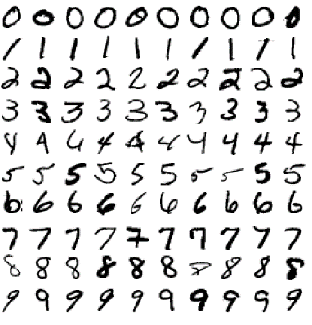 0 0 0 0 0 0 0 0 0 0
1 1 1 1 1 1 1 1 1 1
2 2 2 2 2 2 2 2 2 2
3 3 3 3 3 3 3 3 3 3
4 4 4 4 4 4 4 4 4 4
5 5 5 5 5 5 5 5 5 5
6 6 6 6 6 6 6 6 6 6
7 7 7 7 7 7 7 7 7 7
8 8 8 8 8 8 8 8 8 8
9 9 9 9 9 9 9 9 9 9